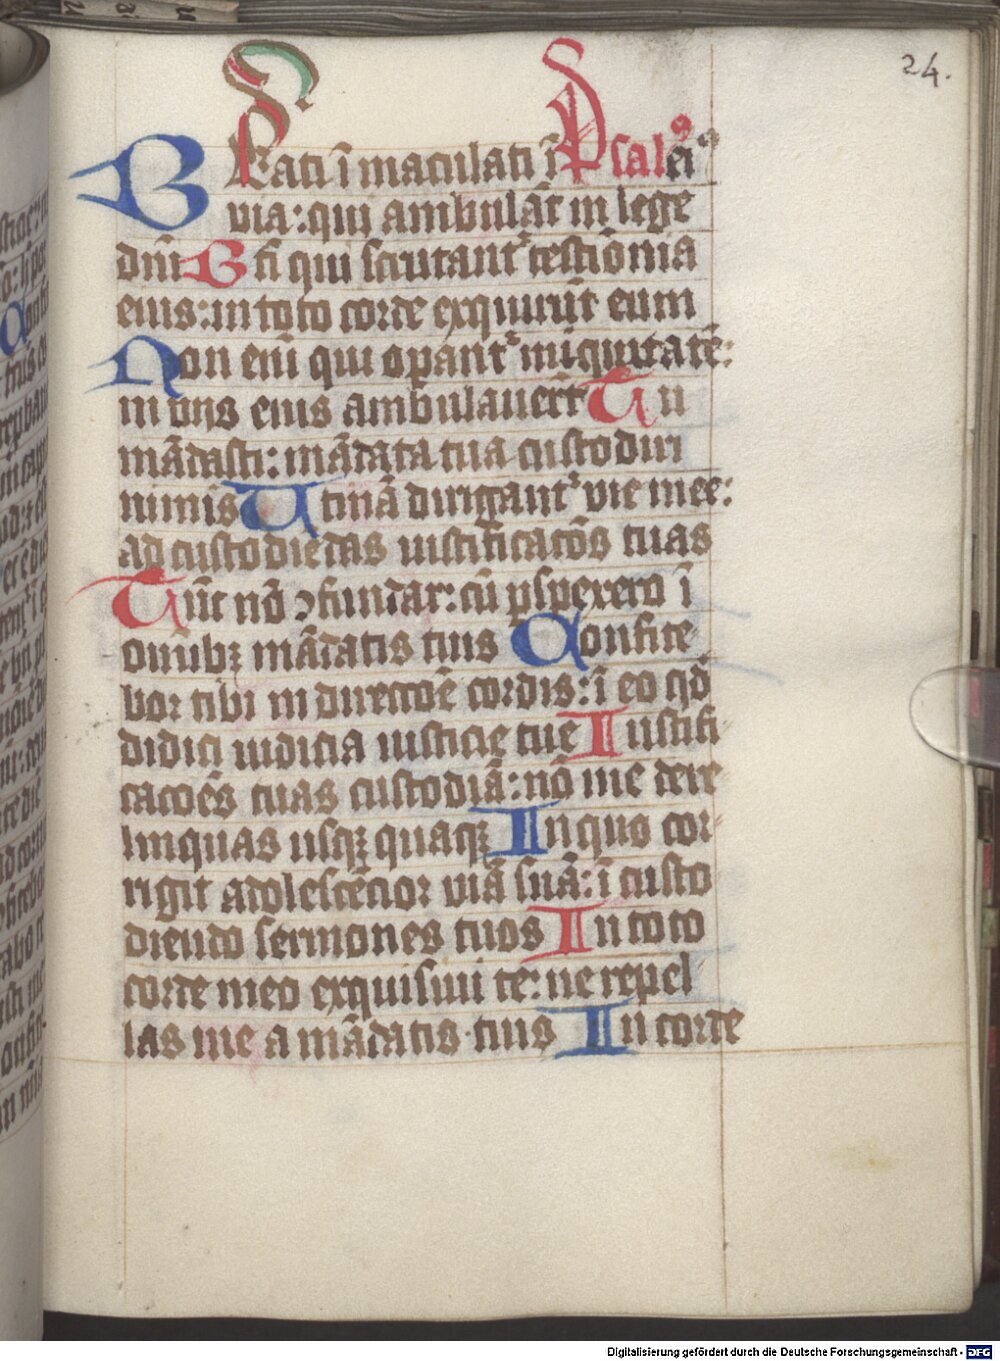 24.
BEati ī maculati ī Psalmꝰ
via: qui ambulāt in lege
dn̄i B̄ti qui scrutantᷣ testiōnia
eius: in toto corde exquirūt eum
Non eni᷑ qui opantᷣ iniquitatē:
in viis eius ambulauer̄t Tu
mādasti: mādata tua custodiri
nimis Utinā dirigantᷣ vie mee:
ad custodiēdas iustificatōs tuas
Tūc nō ꝯfundar: cū ꝑspexero ī
omībꝫ mādatis tuis Confite
bor tibi in directōe cordis: ī eo qd̄
didici iudicia iusticie tue Iustifi
catōes tuas custodiā: nō me dere
linquas usqꝫ quaqꝫ In quo cor
rigit adolescēcior viā suā: ī custo
diendo sermones tuos In toto
corde meo exquisiui te: ne repel
las me a mādatis tuis In corde
Digitalisierung gefördert durch die Deutsche Forschungsgemeinschaft - DFG